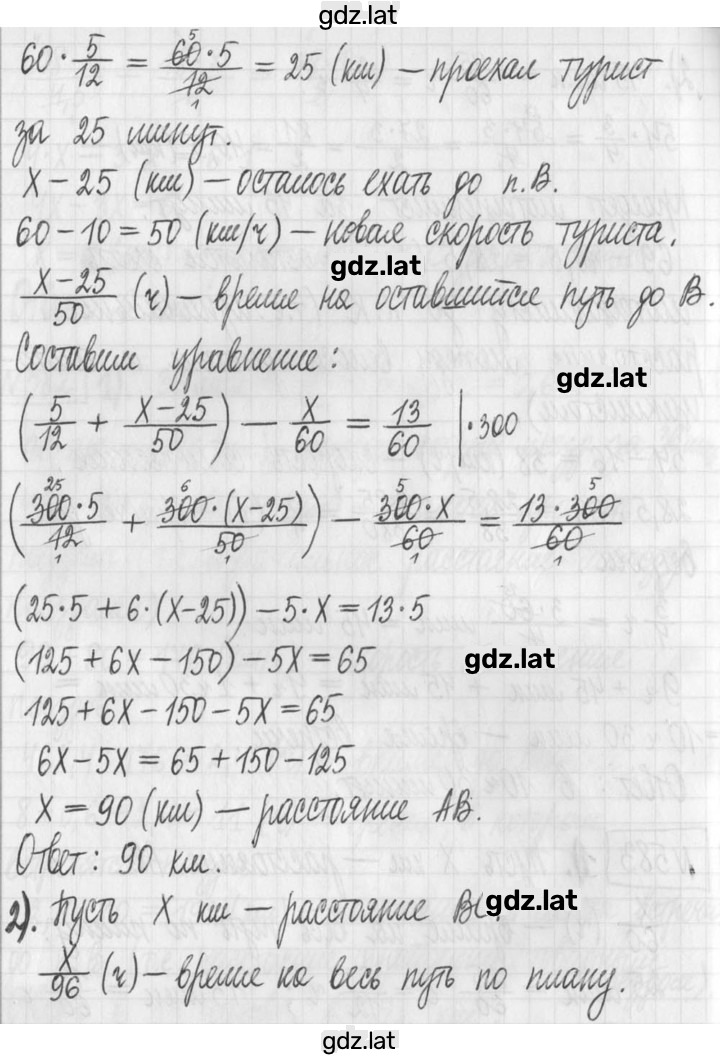 gdz.lat
60 · 5/12 = 60·5/12 = 25 (км) – проехал турист
за 25 минут.
x – 25 (км) – осталось ехать до п. В.
60 – 10 = 50 (км/ч) – новая скорость туриста.
gdz.lat
x–25/50 (ч) – время на оставшийся путь до В.
Составим уравнение:
gdz.lat
(5/12 + x–25/50) – x/60 = 13/60 |·300
(300·5/12 + 300·(x–25)/50) – 300·x/60 = 13·300/60
(25·5 + 6·(x–25)) – 5·x = 13·5
(125 + 6x – 150) – 5x = 65
gdz.lat
125 + 6x – 150 – 5x = 65
6x – 5x = 65 + 150 – 125
x = 90 (км) – расстояние АВ.
Ответ: 90 км.
2). Пусть x км – расстояние ВС.
gdz.lat
x/96 (ч) – время на весь путь по плану.
gdz.lat